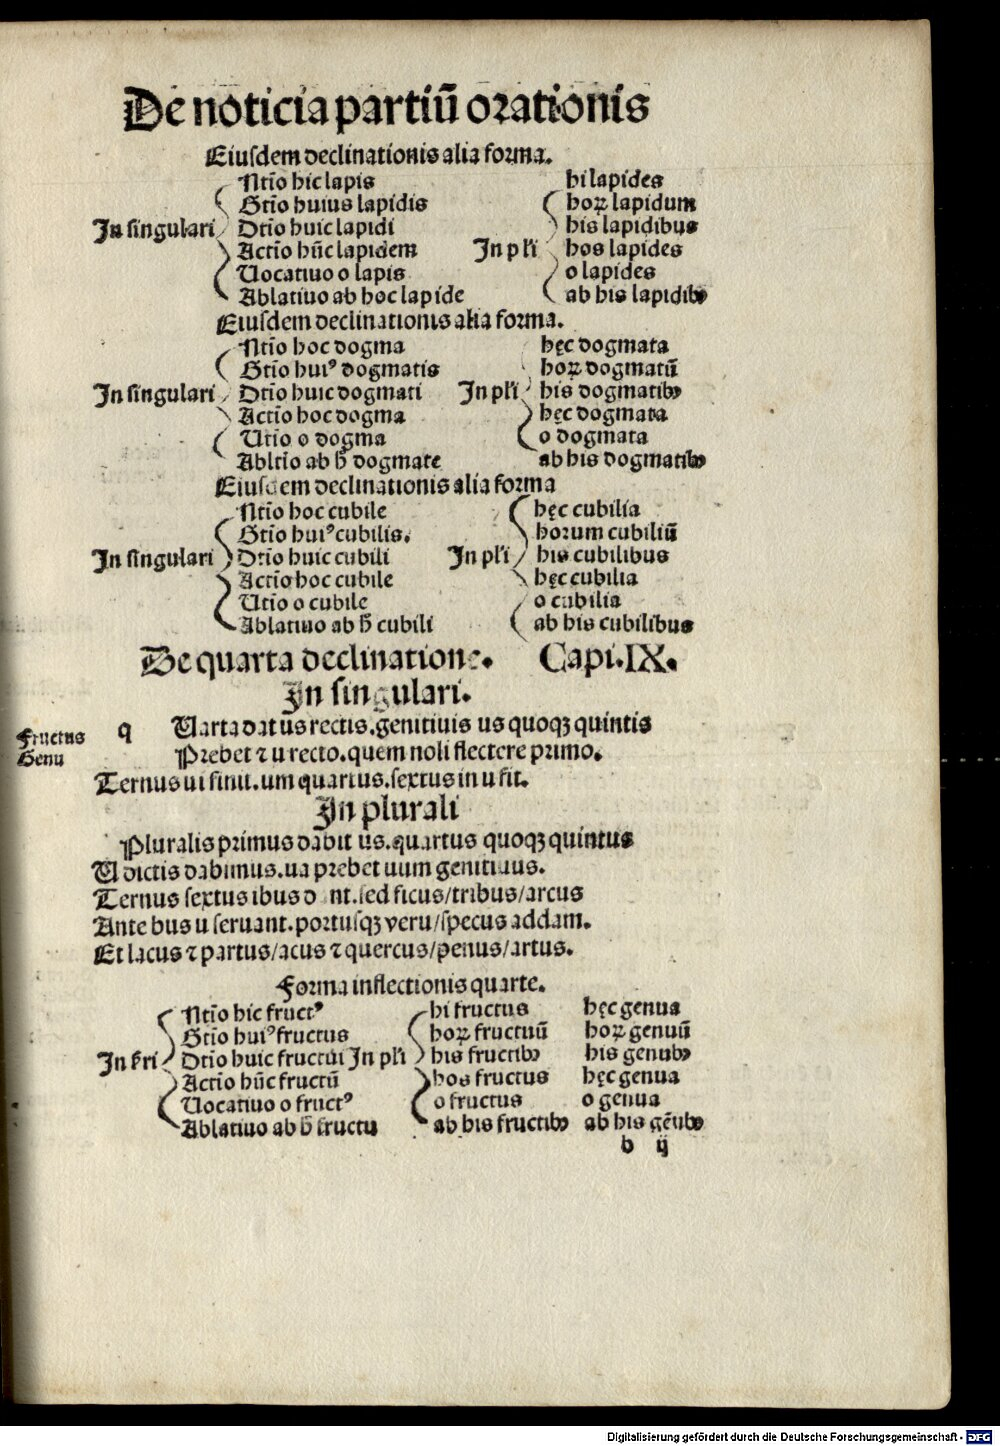 De noticia partiū orationis
Eiusdem declinationis alia forma.
Ntīo hic lapis hi lapides
Gtīo huius lapidis hoꝝ lapidum
In singulari Dtīo huic lapidi his lapidibus
Actīo hūc lapidem In pl'i hos lapides
Uocatiuo o lapis o lapides
Ablatiuo ab hoc lapide ab his lapidibꝰ
Eiusdem declinationis alia forma.
Ntīo hoc dogma hęc dogmata
Gtīo huiꝰ dogmatis hoꝝ dogmatū
In singulari Dtīo huic dogmati In pl'i his dogmatibꝰ
Actīo hoc dogma hęc dogmata
Utīo o dogma o dogmata
Abltīo ab h̄ dogmate ab his dogmatibꝰ
Eiusdem declinationis alia forma
Ntīo hoc cubile hęc cubilia
Gtīo huiꝰ cubilis. horum cubiliū
In singulari Dtīo huic cubili In pl'i his cubilibus
Actīo hoc cubile hęc cubilia
Utīo o cubile o cubilia
Ablatiuo ab h̄ cubili ab his cubilibus
De quarta declinatione. Capi.IX.
In singulari.
q Uarta dat us rectis.genitiuis us quoqꝫ quintis
Fructus
Genu Prebet ⁊ u recto.quem noli flectere primo.
Ternus ui sinii.um quartus.sextus in u fit.
In plurali
Pluralis primus dabit us.quartus quoqꝫ quintus
U dictis dabimus.ua prebet uum genitiuus.
Ternus sextus ibus d nt.sed ficus/tribus/arcus
Ante bus u seruant.portusqꝫ veru/specus addam.
Et lacus ⁊ partus/acus ⁊ quercus/penus/artus.
Forma inflectionis quarte.
Ntīo hic fructꝰ hi fructus hęc genua
Gtīo huiꝰ fructus hoꝝ fructuū hoꝝ genuū
In s̄ri Dtīo huic fructui In pl'i his fructibꝰ his genubꝰ
Actīo hūc fructū hos fructus hęc genua
Uocatiuo o fructꝰ o fructus o genua
Ablatiuo ab h̄ fructu ab his fructibꝰ ab his gēubꝰ
b ij
Digitalisierung gefördert durch die Deutsche Forschungsgemeinschaft - DFG